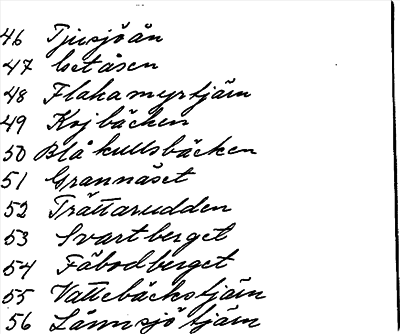 46 Tjusjöån
47 Getåsen
48 Flakamyrtjärn
49 Kojbäcken
50 Blåkullsbäcken
51 Grannäset
52 Trättarudden
53 Svartberget
54 Fäbodberget
55 Vattebäckstjärn
56 Lännsjötjärn